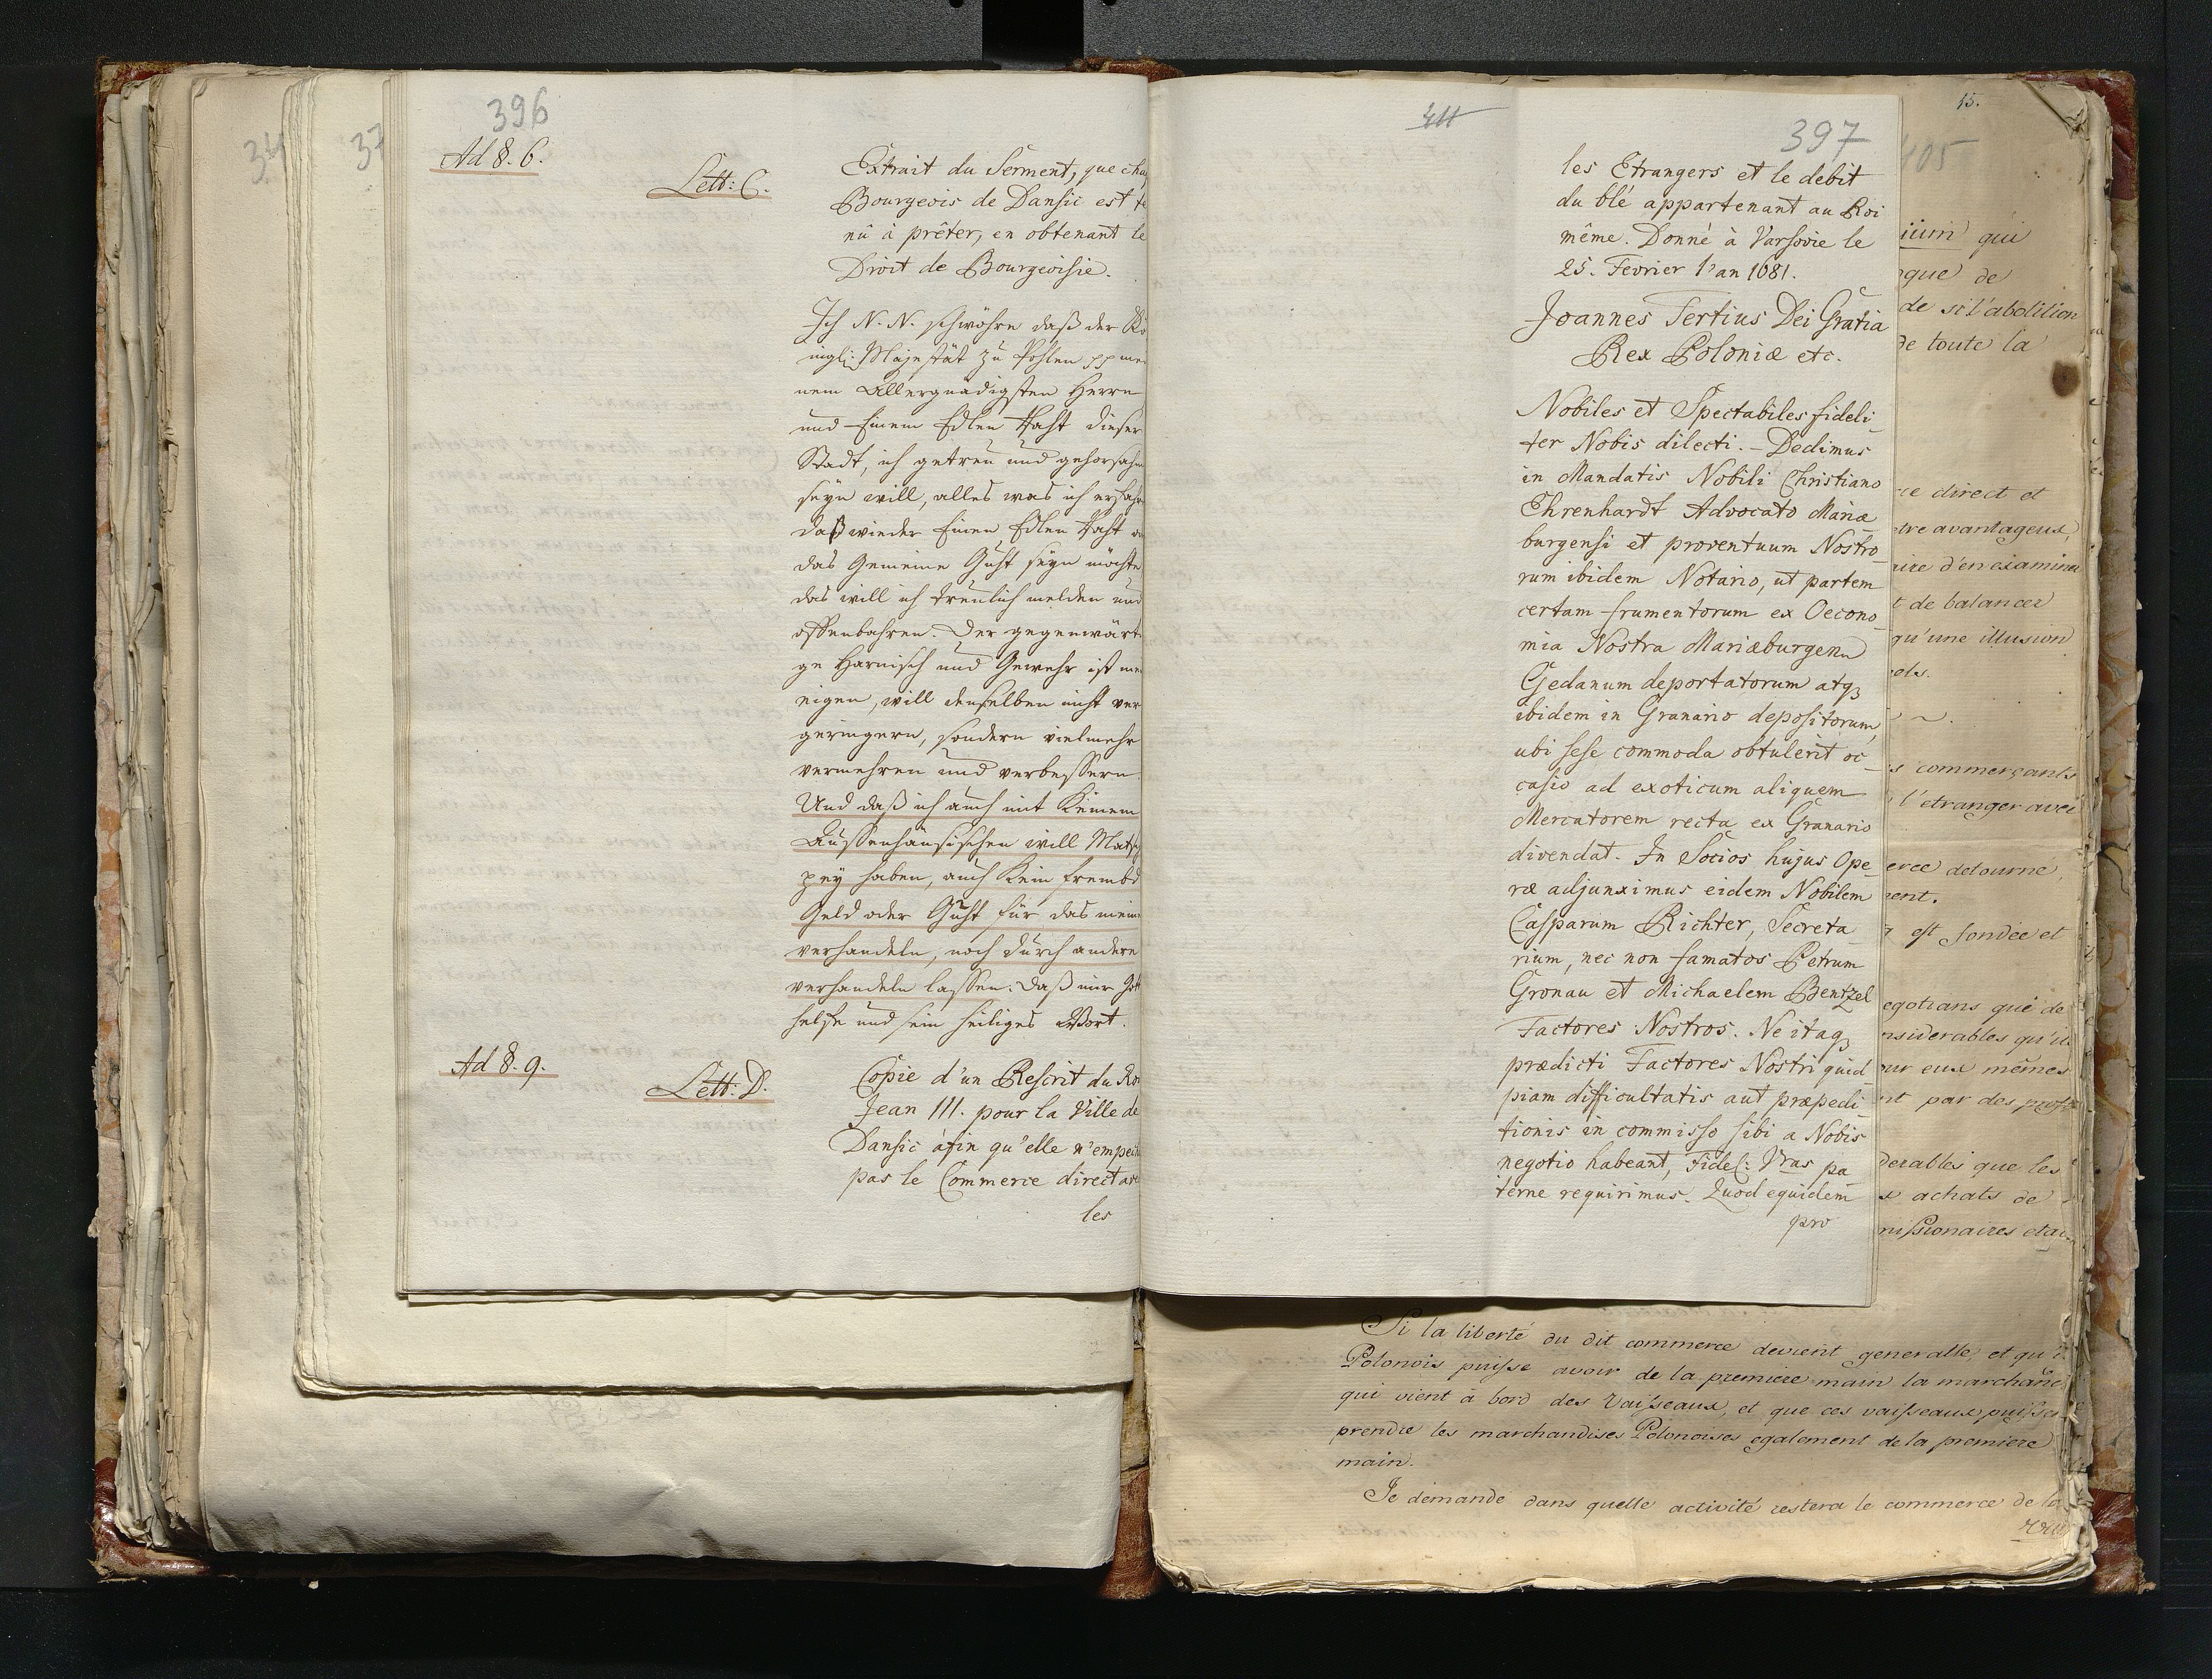 396
Ad §. 6.
Lett: C.
Extrait du Serment, que cha
Bourgeois de Dansic est te
nû à prêter, en obtenant le
Droit de Bourgeoisie.
Ich N. N. schwöhre daß der Kö
nigl: Majestät zu Pohlen pp mei
nem Allergnädigsten Herrn
und Einem Edlen Raht dieser
Stadt, ich getreu und gehorsahm
seyn will, alles was ich erfahr
daß wieder Einen Edlen Raht
das Gemeine Guht seyn möchte
das will ich treulich melden und
offenbahren. Der gegenwärti
ge Harnisch und Gewehr ist mei
eigen, will denselben nicht ver
geringern, sondern vielmehr
vermehren und verbessern.
Und daß ich auch mit Keinem
Außenhänsischen will Matsc
pey haben, auch Kein frembd
Geld oder Guht für das meine
verhandeln, noch durch andere
verhandeln lassen. Daß mir Gott
helfe und sein heiliges Wort.
Ad §. 9.
Lett: D.
Copie d'un Rescrit du Roi
Jean III. pour la Ville de
Dansic àfin qu'elle n'empech
pas le Commerce direct ave
les
411
397
les Etrangers et le debit
du blé appartenant au Roi
même. Donné à Varsovie le
25. Fevrier l'an 1681.
Joannes Tertius Dei Gratia
Rex Poloniæ etc.
Nobiles et Spectabiles fideli-
ter Nobis dilecti. - Dedimus
in Mandatis Nobili Christiano
Ehrenhardt Advocato Mariæ-
burgensi et proventuum Nostro-
rum ibidem Notario, ut partem
certam frumentorum ex Oecono-
mia Nostra Mariæburgen
Gedanum deportatorum atq3
ibidem in Granario depositorum,
ubi sese commoda obtulerit oc-
casio ad exoticum aliquem
Mercatorem recta ex Granario
divendat. In Socios hujus Ope-
ræ adjunximus eidem Nobilem
Casparum Richter, Secreta-
rium, nec non famatos Petrum
Gronau et Michaelem Bentzel
Factores Nostros. Ne itaq3
prædicti Factores Nostri quid-
piam difficultatis aut præpedi-
tionis in commisso sibi a Nobis
negotio habeant, Fidel: Vras pa-
terne requirimus. Quod equidem
pro
15.
405
qui
que de
de si l'abolition
de toute la
ce direct et
tre avantageux,
ire d'en examiner
t de balancer
qu'une illusion
els.
s commerçants
l'etranger avec
erce detourné,
ent.
est fondée et
egotians que de
nsiderables qu'il
ur eux mêmes
nt par des
derables que les
x achats de
missionaires
Si la liberté du dit commerce devient generalle, et qu'
Polonois puisse avoir de la premiere main la marchand
qui vient à bord des Vaisseaux, et que ces vaisseaux puisse
prendre les marchandises Polonoises egalement de la premiere
main.
Je demande dans quelle activité restera le commerce de la